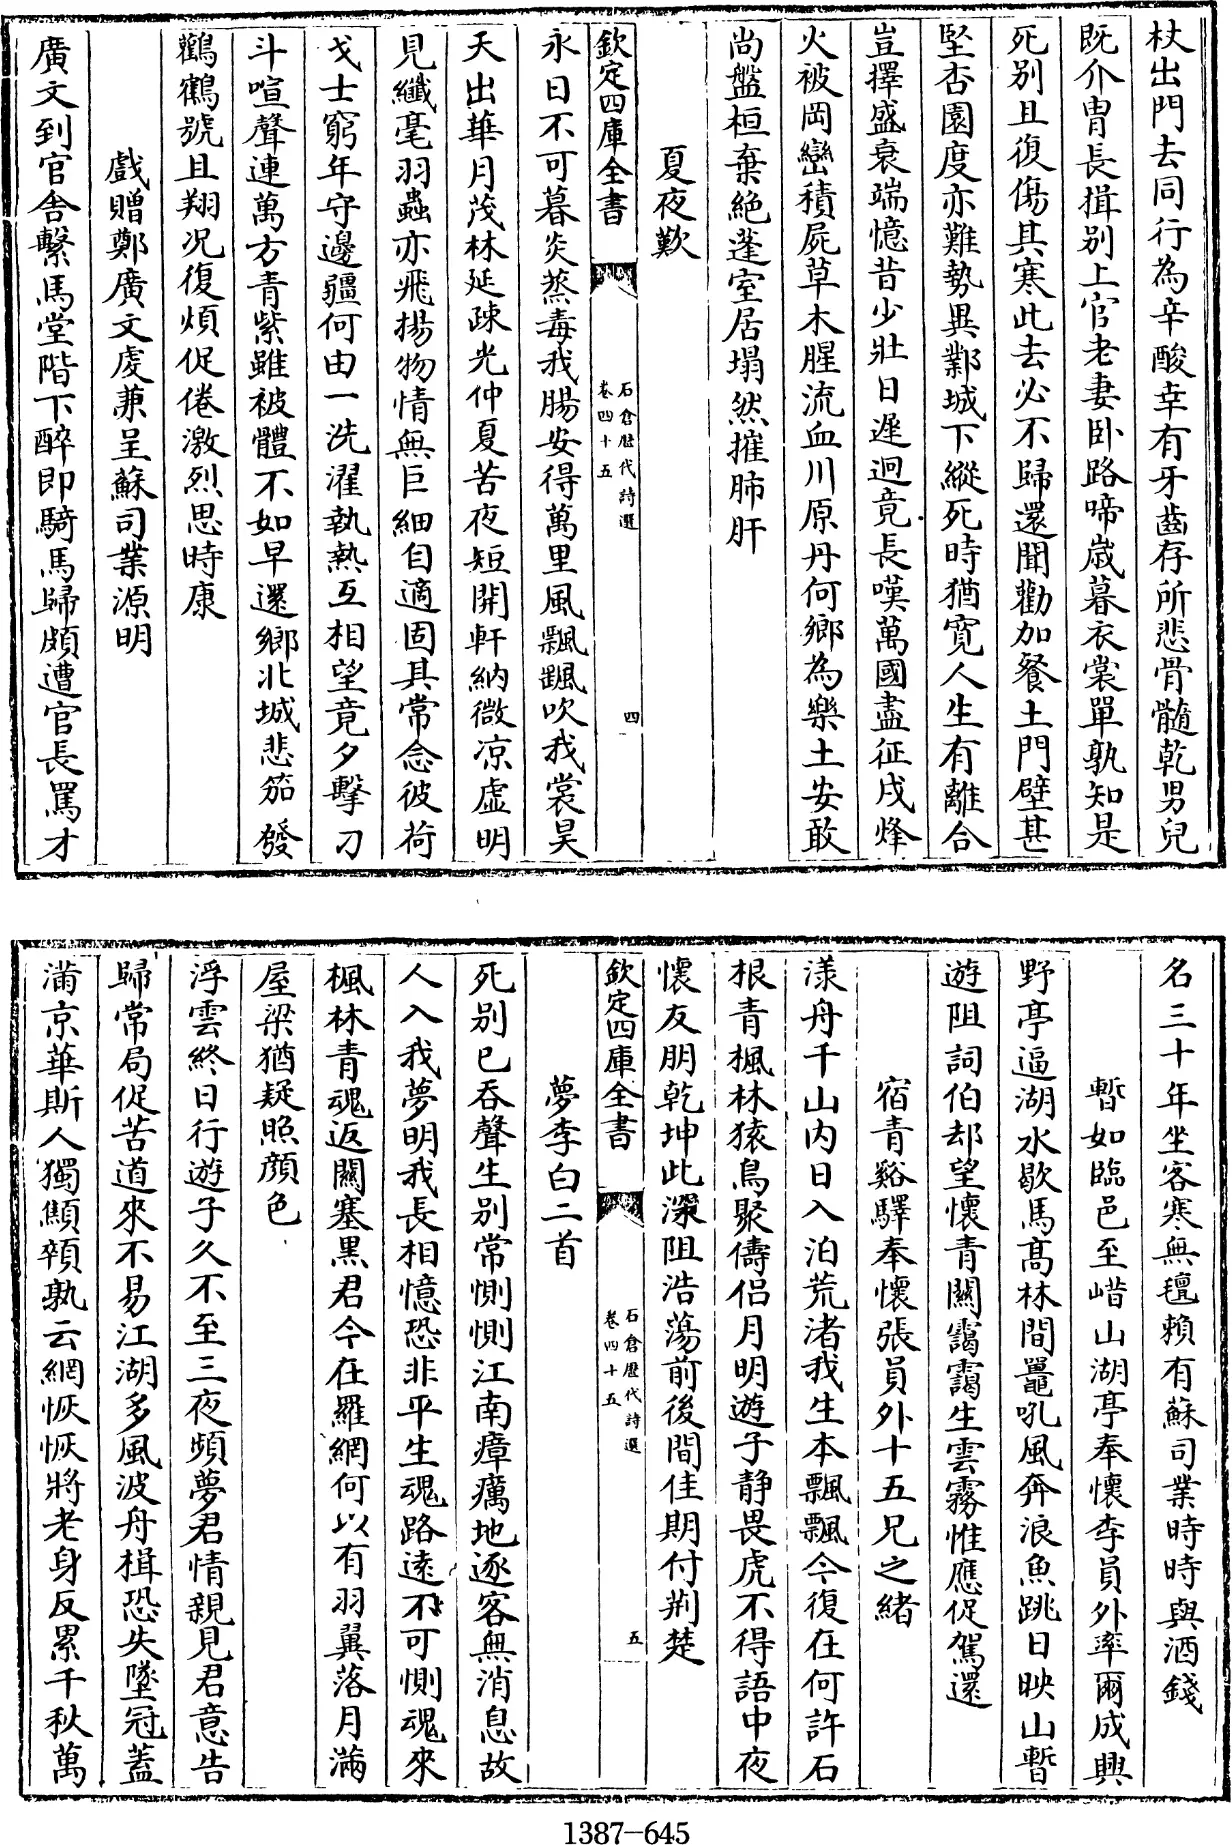 杖出門去同行為辛酸幸有牙齒存所悲骨髓乾男兒
既介胄長揖別上官老妻卧路啼歳暮衣裳單孰知是
死别且復傷其寒此去必不歸還聞勸加餐土門壁甚
堅杏園度亦難勢異鄴城下縱死時猶寛人生有離合
豈擇盛衰端憶昔少壯日遲迴竟長嘆萬國盡征戍烽
火被岡巒積屍草木腥流血川原丹何鄉為樂土安敢
尚盤桓棄絶蓬室居塌然摧肺肝
夏夜歎
欽定四庫全書
石倉歴代詩選
卷四十五
四
永日不可暮炎蒸毒我腸安得萬里風飄颻吹我裳昊
天出華月茂林延疎光仲夏苦夜短開軒納微凉虚明
見纎毫羽蟲亦飛揚物情無巨細自適固其常念彼荷
戈士窮年守邊疆何由一洗濯執熱互相望竟夕擊刁
斗喧聲連萬方青紫雖被體不如早還鄉北城悲笳發
鸛鶴號且翔况復煩促倦激烈思時康
戲贈鄭廣文虔兼呈蘇司業源明
廣文到官舍繫馬堂階下醉即騎馬歸頗遭官長罵才
名三十年坐客寒無氊賴有蘇司業時時與酒錢
暫如臨邑至㟙山湖亭奉懷李員外率爾成興
野亭逼湖水歇馬髙林間鼉吼風奔浪魚跳日映山暫
遊阻詞伯却望懷青關靄靄生雲霧惟應促駕還
宿青谿驛奉懷張員外十五兄之緒
漾舟千山内日入泊荒渚我生本飄飄今復在何許石
根青楓林猿鳥聚儔侣月明遊子静畏虎不得語中夜
懷友朋乾坤此深阻浩蕩前後間佳期付荆楚
欽定四庫全書
石倉歴代詩選
卷四十五
五
夢李白二首
死别已吞聲生别常惻惻江南瘴癘地逐客無消息故
人入我夢明我長相憶恐非平生魂路逺不可惻魂來
楓林青魂返關塞黑君今在羅網何以有羽翼落月滿
屋梁猶疑照顔色
浮雲終日行遊子久不至三夜頻夢君情親見君意告
歸常局促苦道來不易江湖多風波舟楫恐失墜冠蓋
滿京華斯人獨顦顇孰云網恢恢將老身反累千秋萬
1387-645